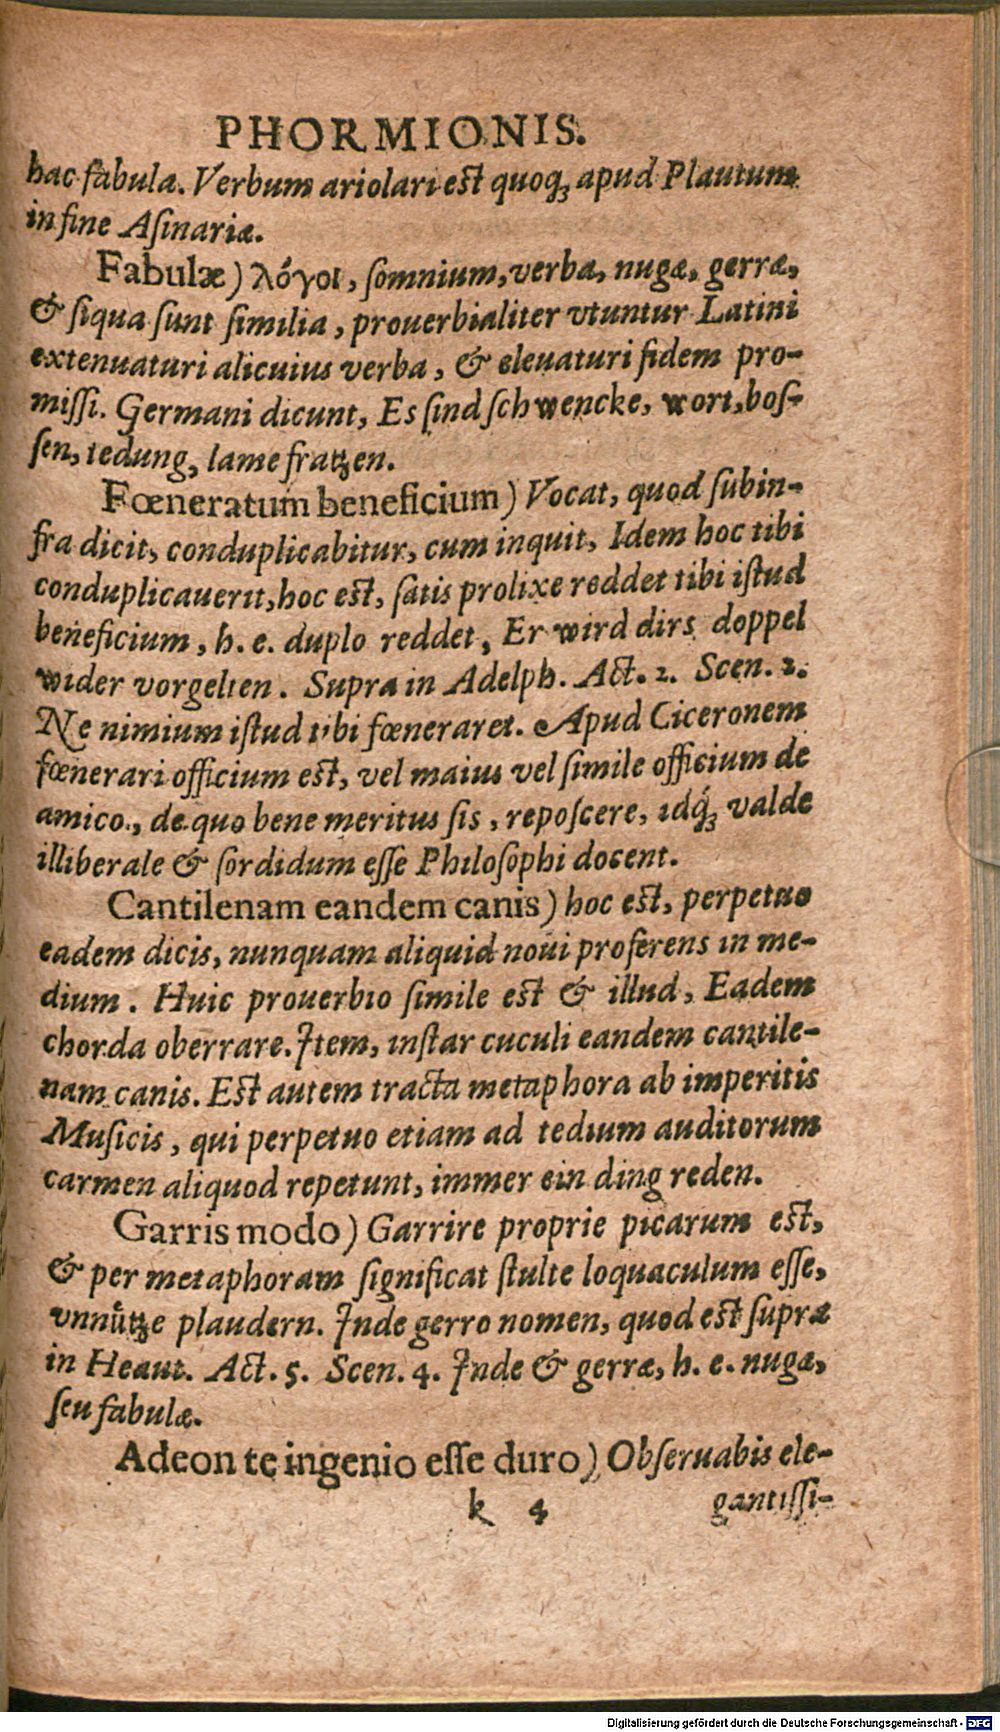 PHORMIONIS.
hac fabula. Verbum ariolari est quoq́ꝫ apud Plautum
in fine Aſinariæ.
Fabulæ) λόγοι, ſomnium, verba, nugæ, gerræ,
& ſiqua ſunt ſimilia, prouerbialiter vtuntur Latini
extenuaturi alicuius verba, & eleuaturi fidem pro-
miſſi. Germani dicunt, Es ſind ſchwencke, wort, boſ-
ſen, tedung, lame fratzen.
Fœneratum beneficium) Vocat, quod ſubin-
fra dicit, conduplicabitur, cum inquit, Idem hoc tibi
conduplicauerit, hoc est, ſatis prolixe reddet tibi iſtud
beneficium, h. e. duplo reddet, Er wird dirs doppel
wider vorgelten. Supra in Adelph. Act. 2. Scen. 2.
Ne nimium iſtud tibi fœneraret. Apud Ciceronem
fœnerari officium est, vel maius vel ſimile officium de
amico, de quo bene meritus ſis, repoſcere, idq́ꝫ valde
illiberale & ſordidum eſſe Philoſophi docent.
Cantilenam eandem canis) hoc est, perpetuo
eadem dicis, nunquam aliquid noui proferens in me-
dium. Huic prouerbio ſimile est & illud, Eadem
chorda oberrare. Item, inſtar cuculi eandem cantile-
nam canis. Est autem tracta metaphora ab imperitis
Muſicis, qui perpetuo etiam ad tedium auditorum
carmen aliquod repetunt, immer ein ding reden.
Garris modo) Garrire proprie picarum est,
& per metaphoram ſignificat ſtulte loquaculum eſſe,
vnnütze plaudern. Inde gerro nomen, quod est ſupra
in Heaut. Act. 5. Scen. 4. Inde & gerræ, h. e. nugæ,
ſeu fabulæ.
Adeon te ingenio eſſe duro) Obſeruabis ele-
k 4 gantiſſi-
Digitalisierung gefördert durch die Deutsche Forschungsgemeinschaft - DFG